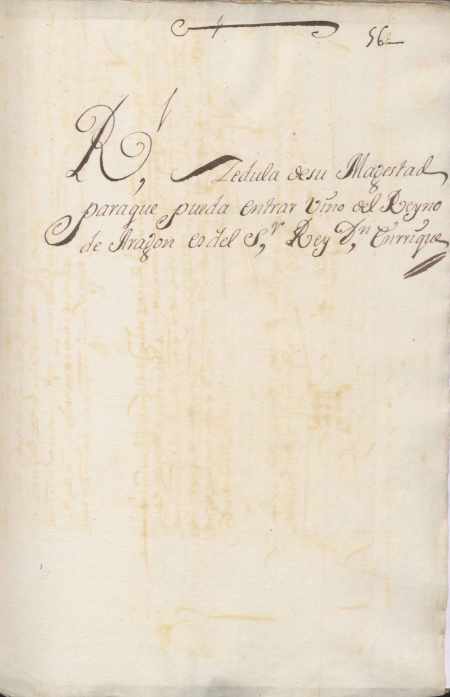 56
R,l Zedula de su Magestad
paraque pueda entrar vino del Reyno
de Aragon es del S,r Rey D,n Enrrique